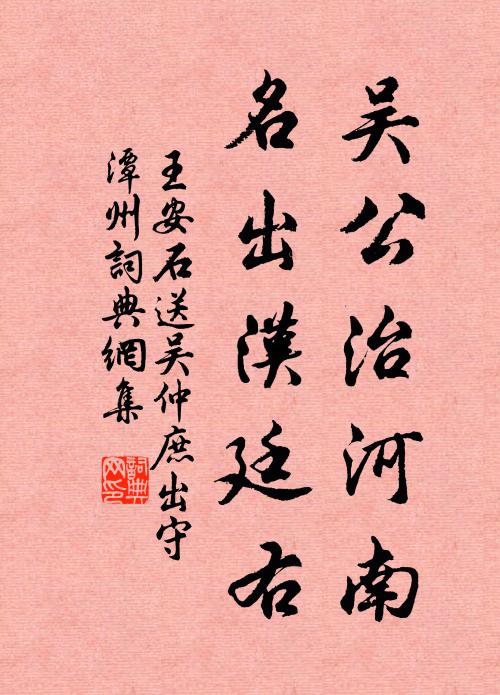 吴公治河南
名出漢廷右
王安石送吴仲庶出守
潭州詞典網集
詞典网印